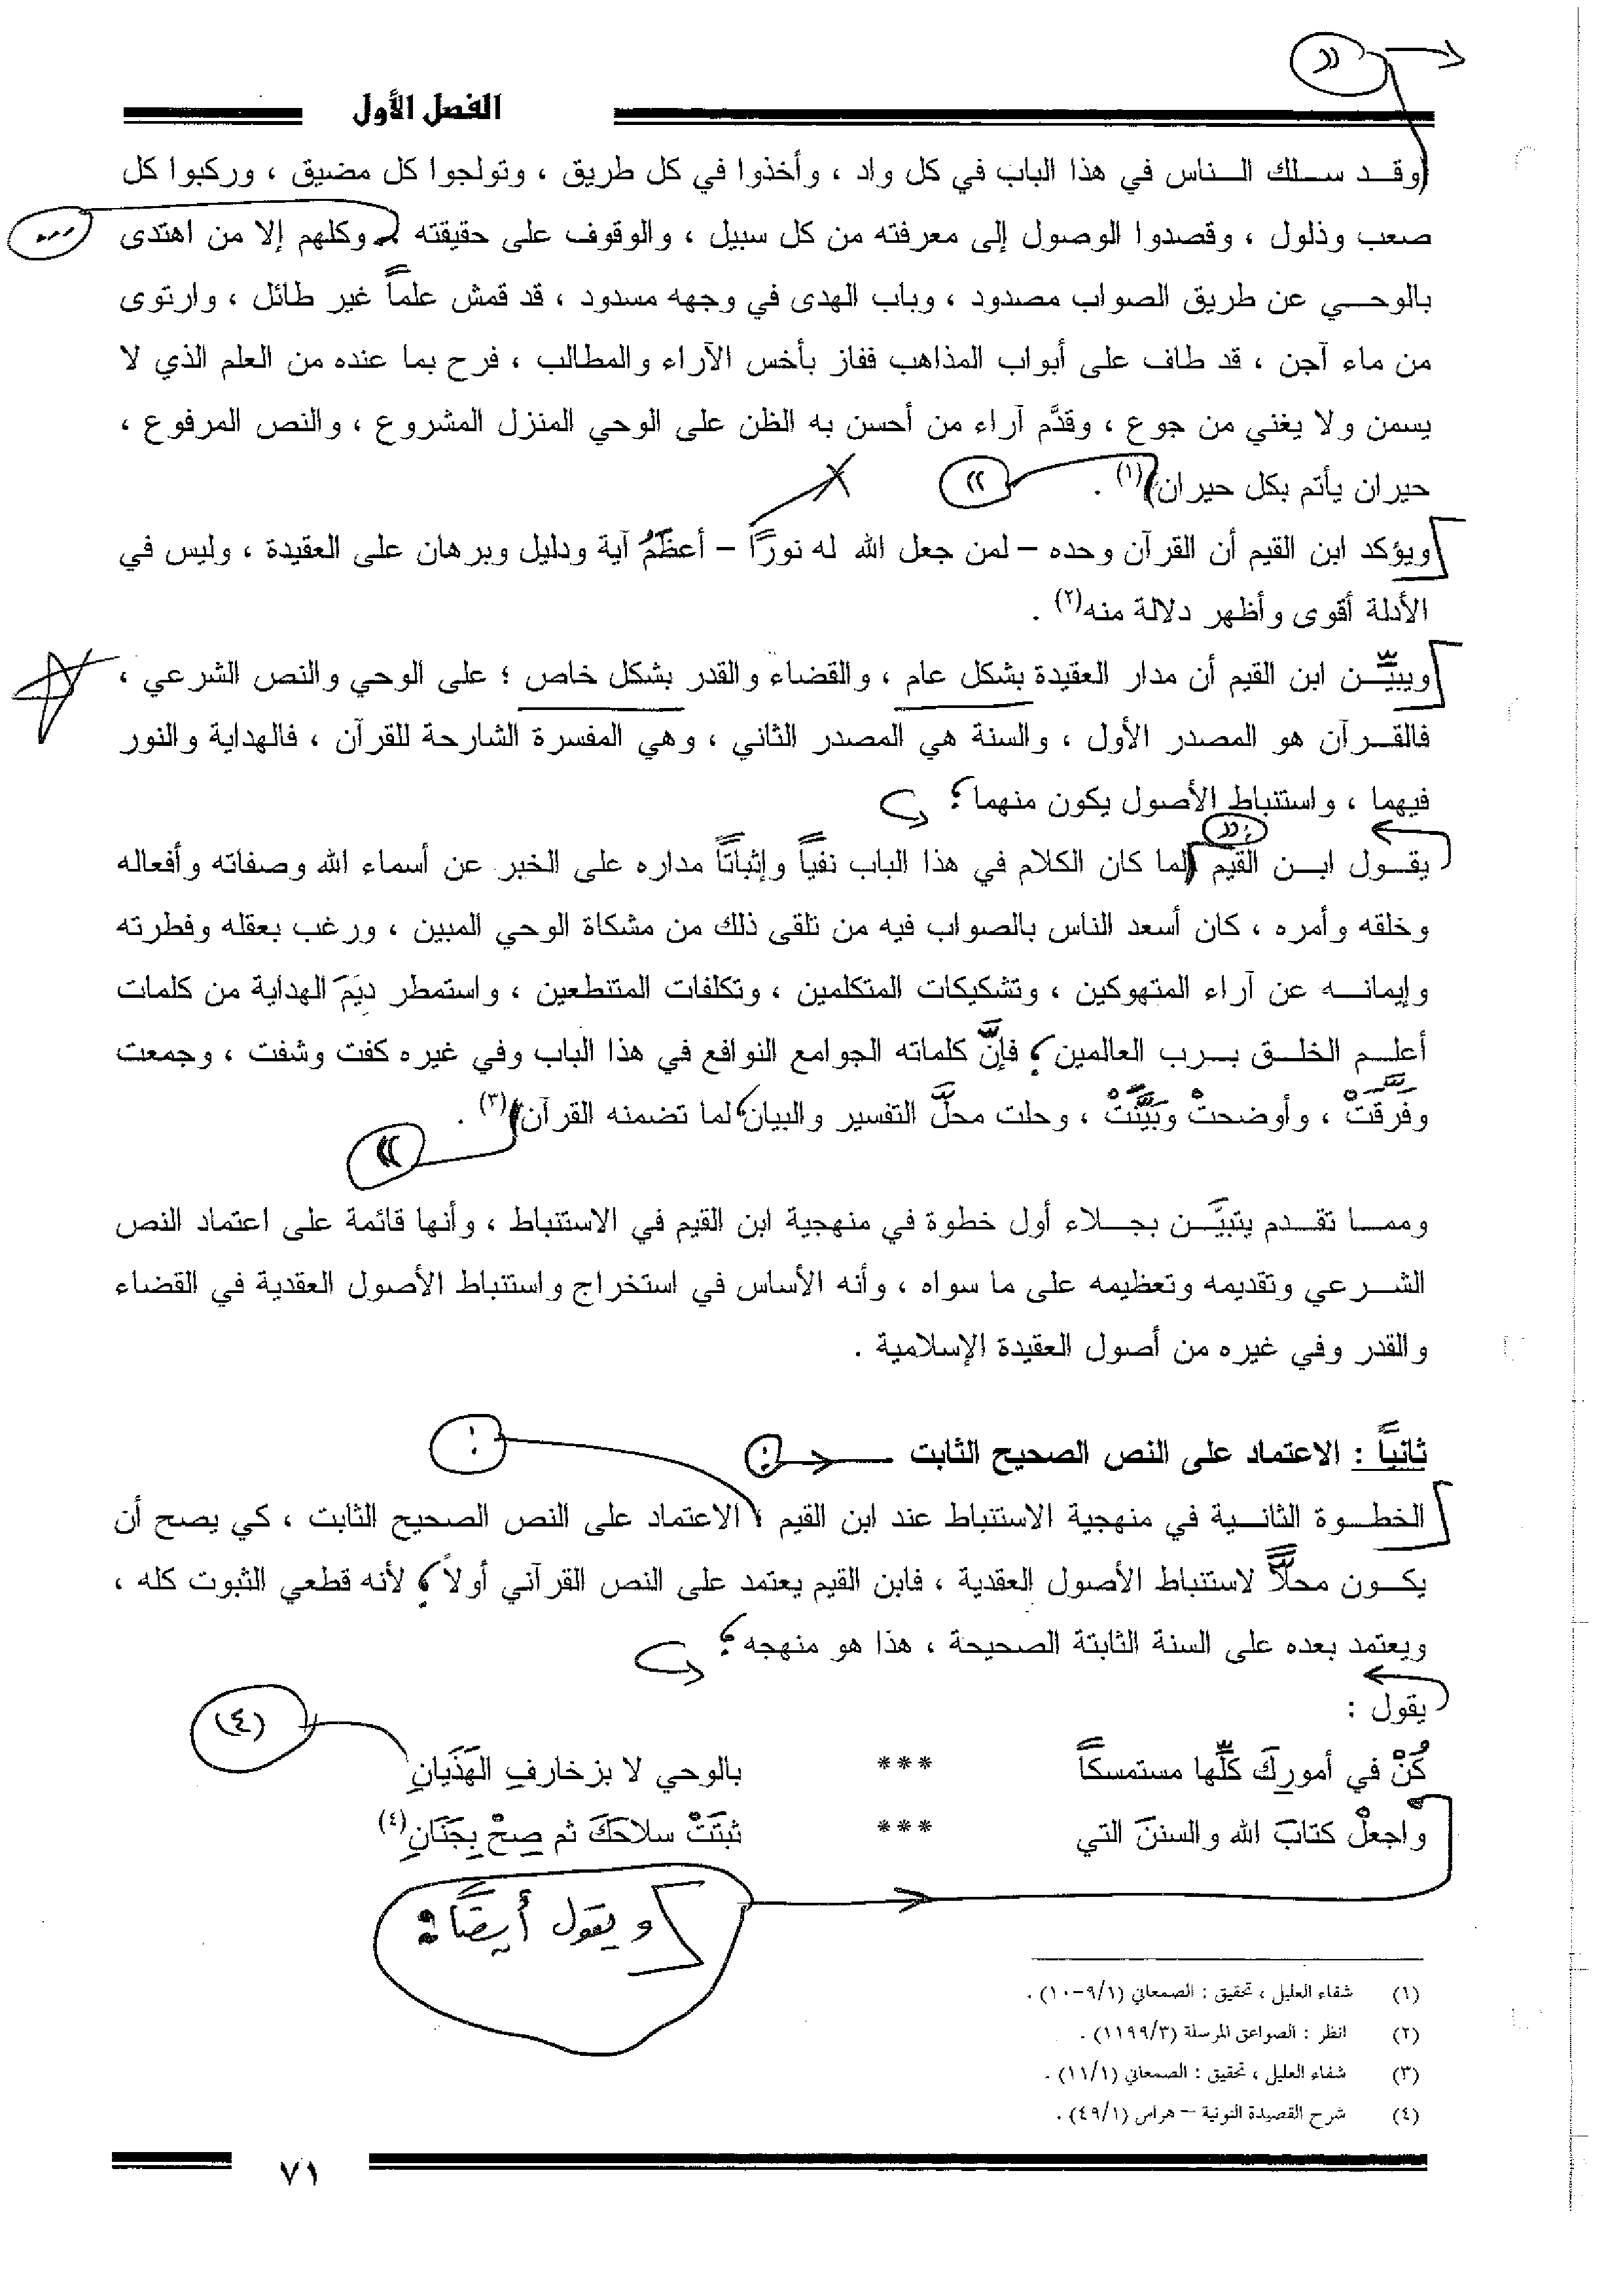 الفصل الأول
(وقد سلك الناس في هذا الباب في كل واد ، وأخذوا في كل طريق ، وتولجوا كل مضيق ، وركبوا كل
صعب وذلول ، وقصدوا الوصول إلى معرفته من كل سبيل ، والوقوف على حقيقته .. وكلهم إلا من اهتدى
بالوحي عن طريق الصواب مصدود ، وباب الهدى في وجهه مسدود ، قد قمش علماً غير طائل ، وارتوى
من ماء آجن ، قد طاف على أبواب المذاهب ففاز بأخس الآراء والمطالب ، فرح بما عنده من العلم الذي لا
يسمن ولا يغني من جوع ، وقدَّم آراء من أحسن به الظن على الوحي المنزل المشروع ، والنص المرفوع ،
حيران يأتم بكل حيران)(١) .
ويؤكد ابن القيم أن القرآن وحده – لمن جعل الله له نوراً – أعظمُ آية ودليل وبرهان على العقيدة ، وليس في
الأدلة أقوى وأظهر دلالة منه(٢) .
ويبيِّن ابن القيم أن مدار العقيدة بشكل عام ، والقضاء والقدر بشكل خاص ؛ على الوحي والنص الشرعي ،
فالقرآن هو المصدر الأول ، والسنة هي المصدر الثاني ، وهي المفسرة الشارحة للقرآن ، فالهداية والنور
فيهما ، واستنباط الأصول يكون منهما ؛
يقول ابن القيم (لما كان الكلام في هذا الباب نفياً وإثباتاً مداره على الخبر عن أسماء الله وصفاته وأفعاله
وخلقه وأمره ، كان أسعد الناس بالصواب فيه من تلقى ذلك من مشكاة الوحي المبين ، ورغب بعقله وفطرته
وإيمانه عن آراء المتهوكين ، وتشكيكات المتكلمين ، وتكلفات المتنطعين ، واستمطر ديَمَ الهداية من كلمات
أعلم الخلق برب العالمين ؛ فإنَّ كلماته الجوامع النوافع في هذا الباب وفي غيره كفت وشفت ، وجمعت
وفَرَّقتْ ، وأوضحتْ وبَيَّنتْ ، وحلت محلَّ التفسير والبيان لما تضمنه القرآن)(٣) .
ومما تقدم يتبيَّن بجلاء أول خطوة في منهجية ابن القيم في الاستنباط ، وأنها قائمة على اعتماد النص
الشرعي وتقديمه وتعظيمه على ما سواه ، وأنه الأساس في استخراج واستنباط الأصول العقدية في القضاء
والقدر وفي غيره من أصول العقيدة الإسلامية .
ثانياً : الاعتماد على النص الصحيح الثابت :
الخطوة الثانية في منهجية الاستنباط عند ابن القيم : الاعتماد على النص الصحيح الثابت ، كي يصح أن
يكون محلاًّ لاستنباط الأصول العقدية ، فابن القيم يعتمد على النص القرآني أولاً ؛ لأنه قطعي الثبوت كله ،
ويعتمد بعده على السنة الثابتة الصحيحة ، هذا هو منهجه ؛
يقول :
كُنْ في أمورِكَ كلِّها مستمسكاً *** بالوحي لا بزخارفِ الهَذَيانِ
(٤)
واجعلْ كتابَ الله والسننَ التي *** ثبتَتْ سلاحَكَ ثم صِحْ بِجَنَانِ(٤)
ويقول أيضاً :
(١) شفاء العليل ، تحقيق : الصمعاني (٩/١-١٠) .
(٢) انظر : الصواعق المرسلة (١١٩٩/٣) .
(٣) شفاء العليل ، تحقيق : الصمعاني (١١/١) .
(٤) شرح القصيدة النونية – هراس (٤٩/١) .
٧١